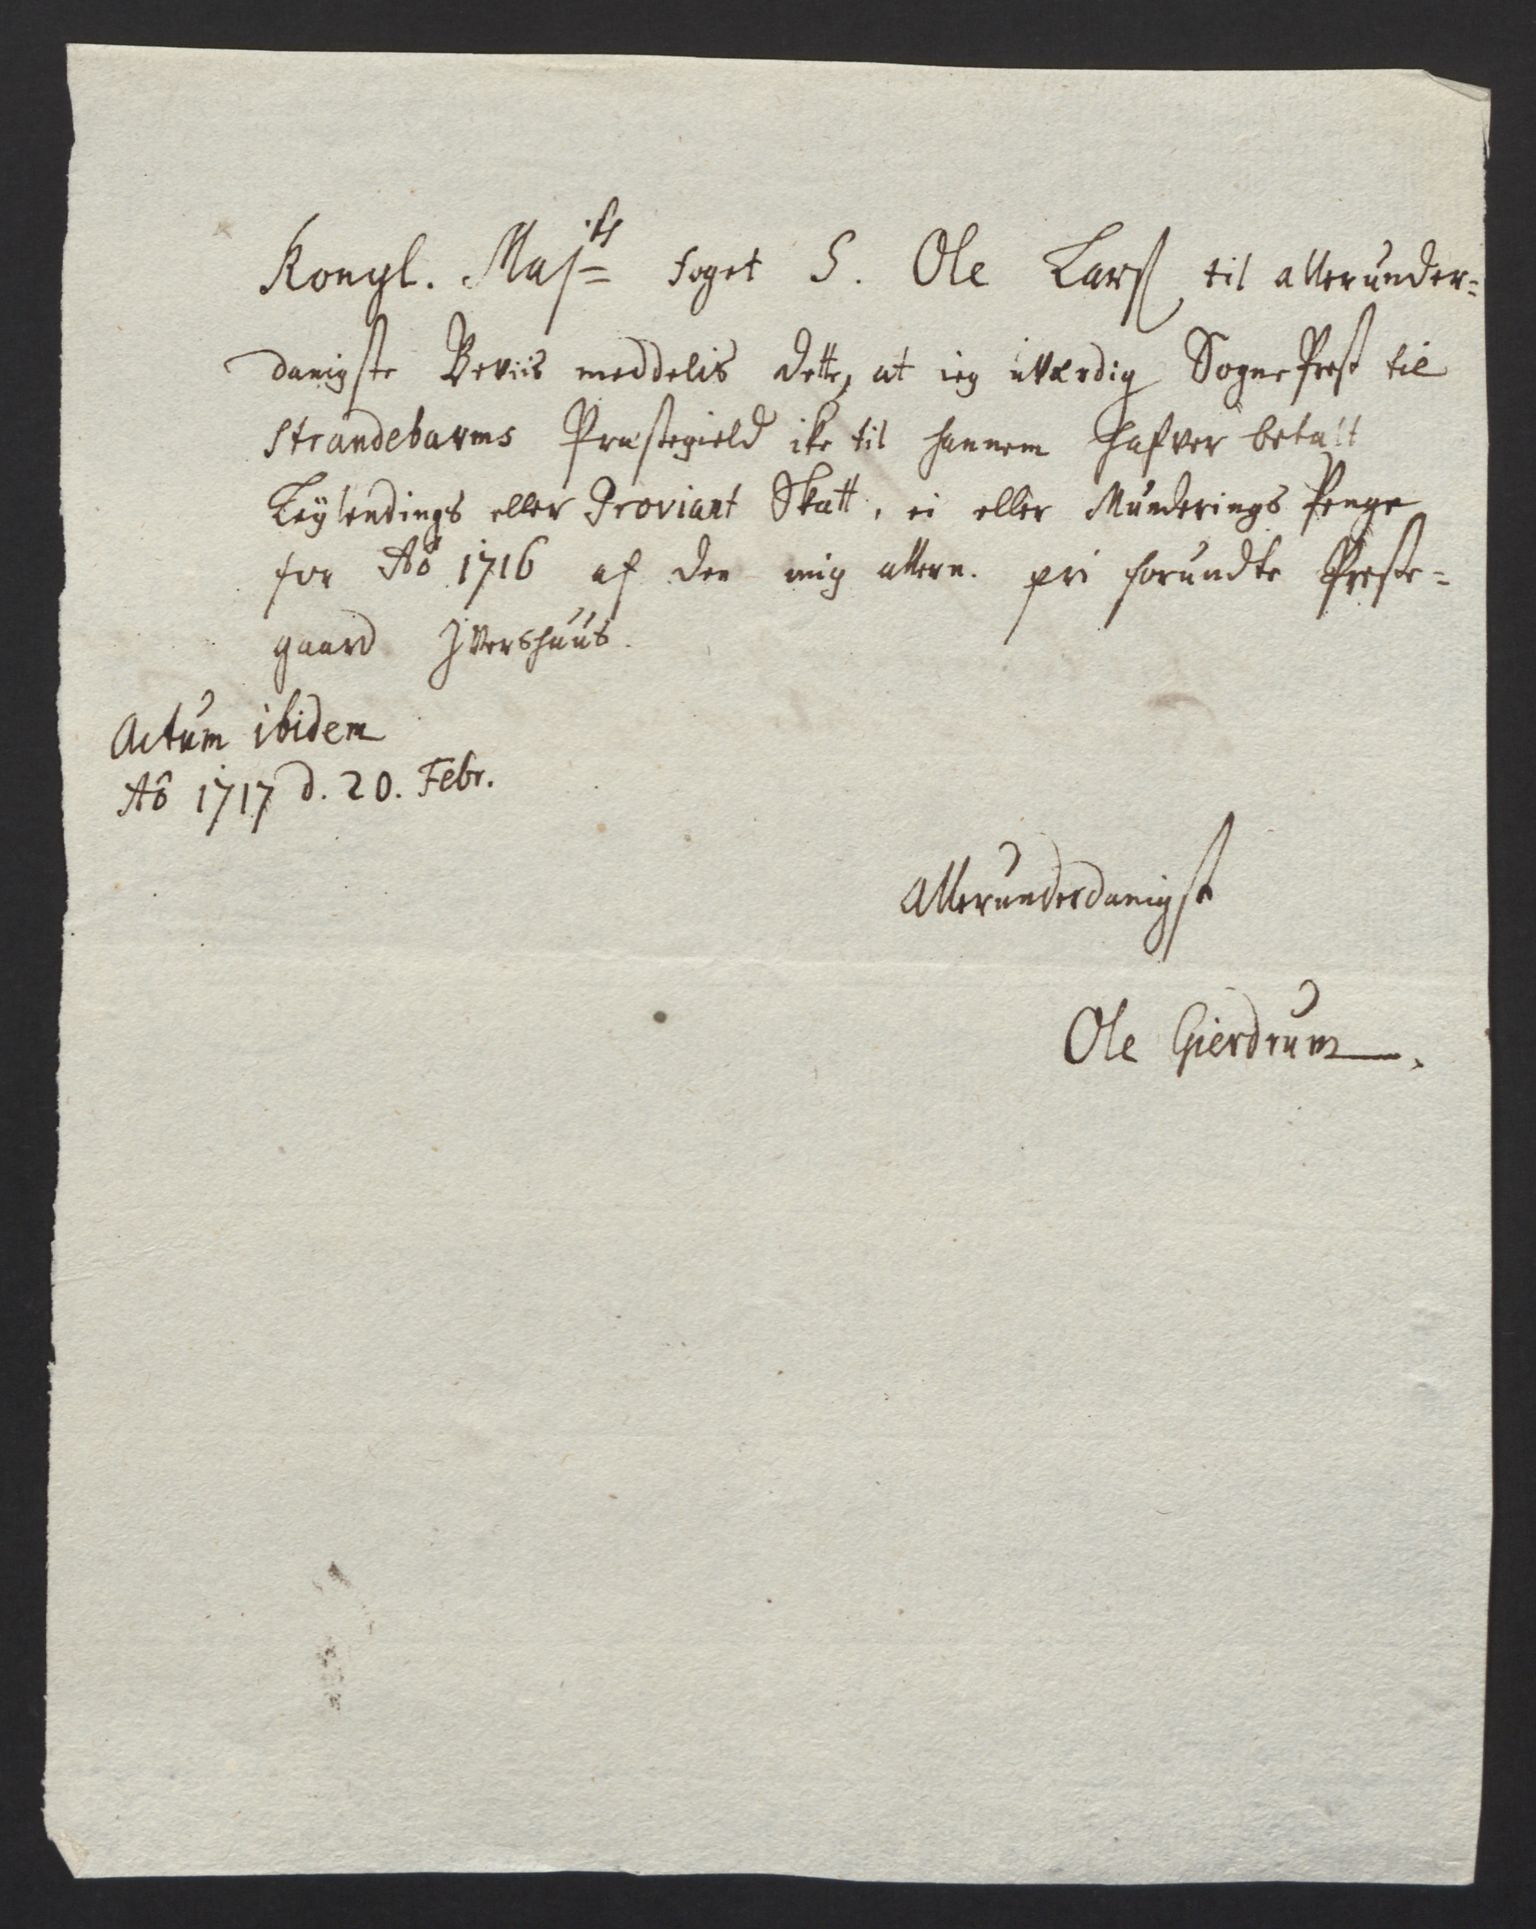 Kongl. Maj.ts foget S. Ole Larsß til allerunder=
danigste Beviis meddelis dette, at ieg uværdig SognePrest til
Strandebarms Præstegield ike til hannem hafver betalt
Leÿlendings eller Proviant Skatt, ei eller Munderings Penge
for Aō 1716 af den mig allern. pri forundte Preste=
gaard Ivershuus.
Actum ibidem
Aō 1717 d. 20. Febr.
Allerunderdanigst
Ole Gierdrum.